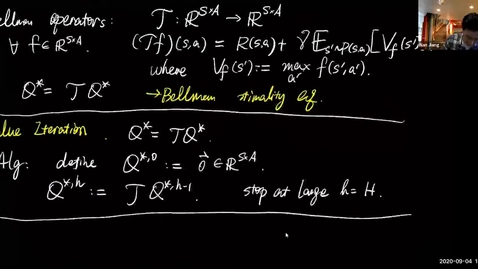 llman operators: 𝒯: ℝ^{S×A} → ℝ^{S×A}
∀ f ∈ ℝ^{S×A}. (𝒯f)(s,a) = R(s,a) + γ 𝔼_{s'~P(s,a)}[V_f(s')
where V_f(s') := max_{a'} f(s',a').
Q* = 𝒯Q* → Bellman
lue Iteration. Q* = 𝒯Q*.
Alg: define Q^{*,0} := 0⃗ ∈ ℝ^{S×A}
Q^{*,h} := 𝒯 Q^{*,h-1}. stop at large h = H.
Nan Jiang
2020-09-04 1